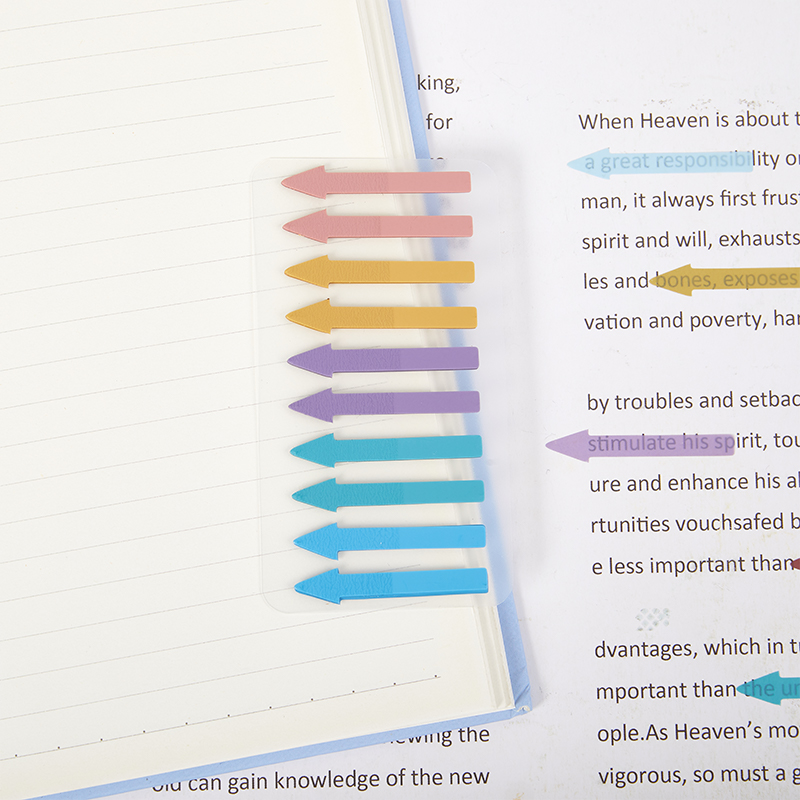 king,
for
When Heaven is about t
a great responsibility o
man, it always first frus
spirit and will, exhausts
les and bones, exposes
vation and poverty, har
by troubles and setbac
stimulate his spirit, tou
ure and enhance his a
rtunities vouchsafed b
e less important than
dvantages, which in tu
mportant than the un
ople.As Heaven's mo
vigorous, so must a g
ewing the
old can gain knowledge of the new